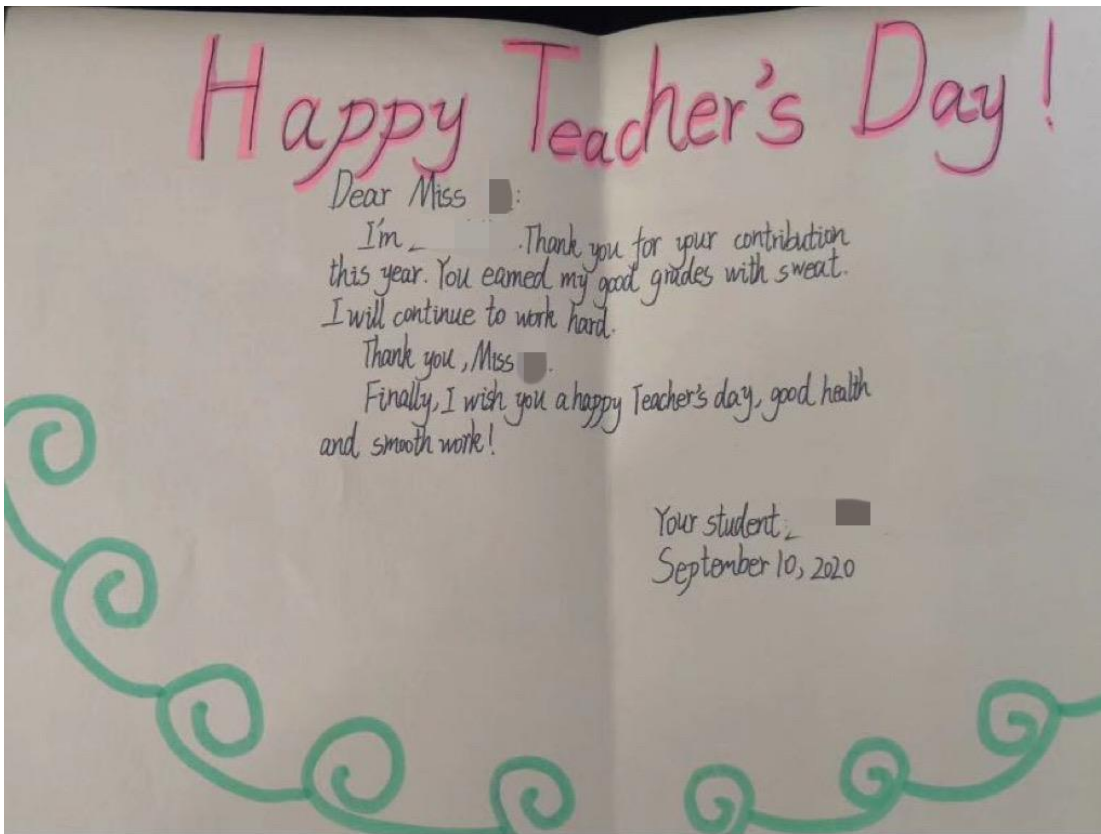 Happy Teacher's Day!
Dear Miss :
I'm . Thank you for your contribution
this year. You earned my good grades with sweat.
I will continue to work hard.
Thank you, Miss .
Finally, I wish you a happy Teacher's day, good health
and smooth work!
Your student:
September 10, 2020